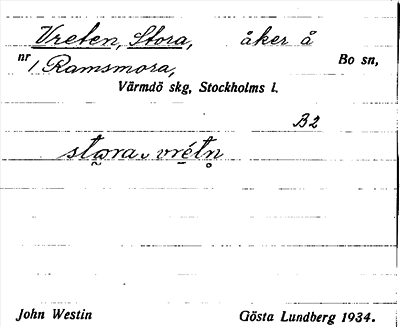 Vreten, Stora, åker å
nr 1 Ramsmora, Bo sn,
Värmdö skg, Stockholms l.
B2
stǫra vrétn̥
John Westin Gösta Lundberg 1934.